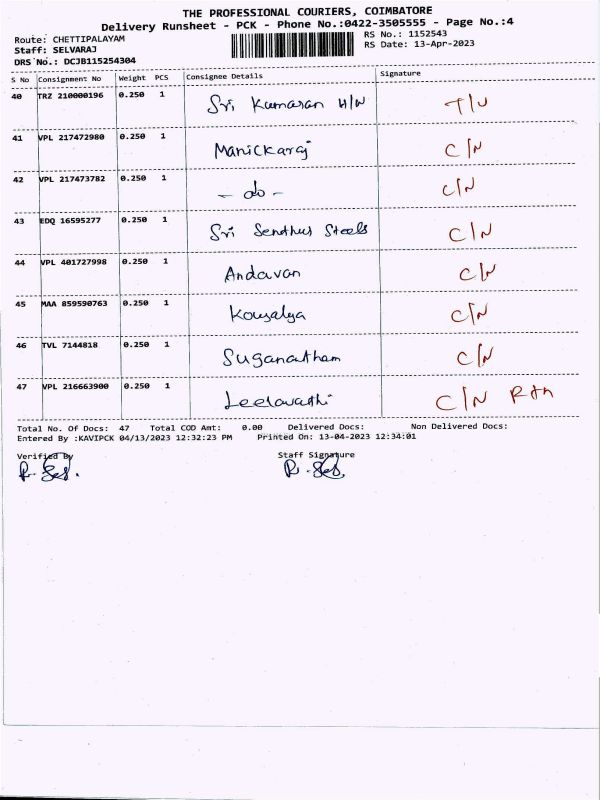 THE PROFESSIONAL COURIERS, COIMBATORE
Delivery Runsheet - PCK - Phone No.:0422-3505555 - Page No.:4
Route: CHETTIPALAYAM
RS No.: 1152543
Staff: SELVARAJ
RS Date: 13-Apr-2023
DRS No.: DCJB115254304
S No Consignment No Weight PCS Consignee Details Signature
40 TRZ 210000196 0.250 1 Sri Kumaran H/W T/U
41 VPL 217472980 0.250 1 Manickaraj C/N
42 VPL 217473782 0.250 1 - do - C/N
43 EDQ 16595277 0.250 1 Sri Sendhur Steels C/N
44 VPL 401727998 0.250 1 Andavan C/N
45 MAA 859590763 0.250 1 Kousalya C/N
46 TVL 7144818 0.250 1 Suganantham C/N
47 VPL 216663900 0.250 1 Leelavathi C/N
Total No. Of Docs: 47 Total COD Amt: 0.00 Delivered Docs: Non Delivered Docs:
Entered By :KAVIPCK 04/13/2023 12:32:23 PM Printed On: 13-04-2023 12:34:01
Verified By Staff Signature